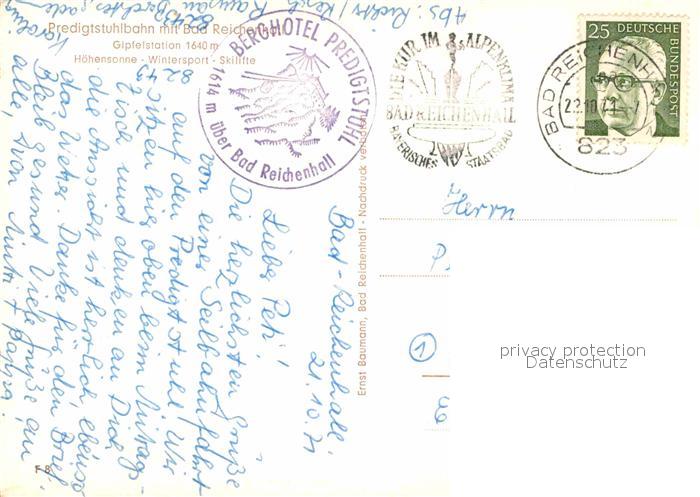 Predigtstuhlbahn mit Bad Reichenhall
Gipfelstation 1640 m
Höhensonne - Wintersport - Skilifte
BERGHOTEL PREDIGTSTUHL
1614 m über Bad Reichenhall
DIE KUR IM ALPENKLIMA
BAD REICHENHALL
BAYERISCHES STAATSBAD
25 DEUTSCHE BUNDESPOST
BAD REICHENHALL
823
Bad-Reichenhall
21.10.71
Liebe Peti!
Die herzlichsten Grüße
von einer Seilbahnfahrt
auf den Predigtstuhl. Wir
sitzen hier oben beim Mittags-
tisch und denken an Dich
die Aussicht ist herrlich, ebenso
das Wetter. Danke für den Brief
Bleib gesund Viele Grüße an
alle, von Mutti + Pappa.
Abs:
8243
Herrn
P
1
Ernst Baumann, Bad Reichenhall - Nachdruck verboten
F 8
privacy protection
Datenschutz